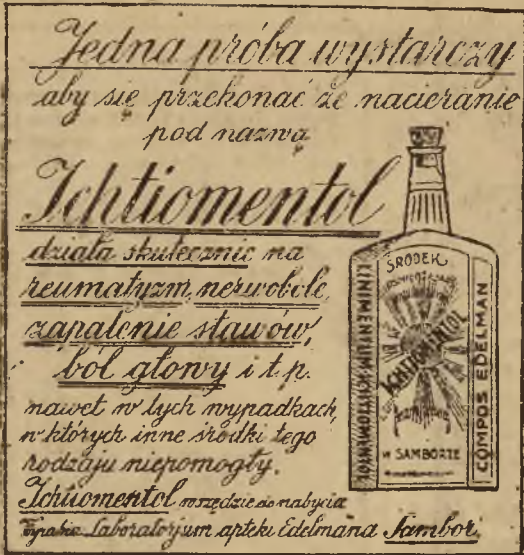 Jedna próba wystarczy
aby się przekonać że nacieranie
pod nazwą
Ichtiomentol
działa skutecznie na
reumatyzm, nerwobole,
zapalenie stawów,
ból głowy i t. p.
nawet w tych wypadkach,
w których inne środki tego
rodzaju niepomogły.
Ichtiomentol wszędzie do nabycia
Laboratorjum apteki Edelmana Sambor.
ŚRODEK
ICHTIOMENTOL
w SAMBORZE
LINIMENTUM
COMPOS EDELMAN